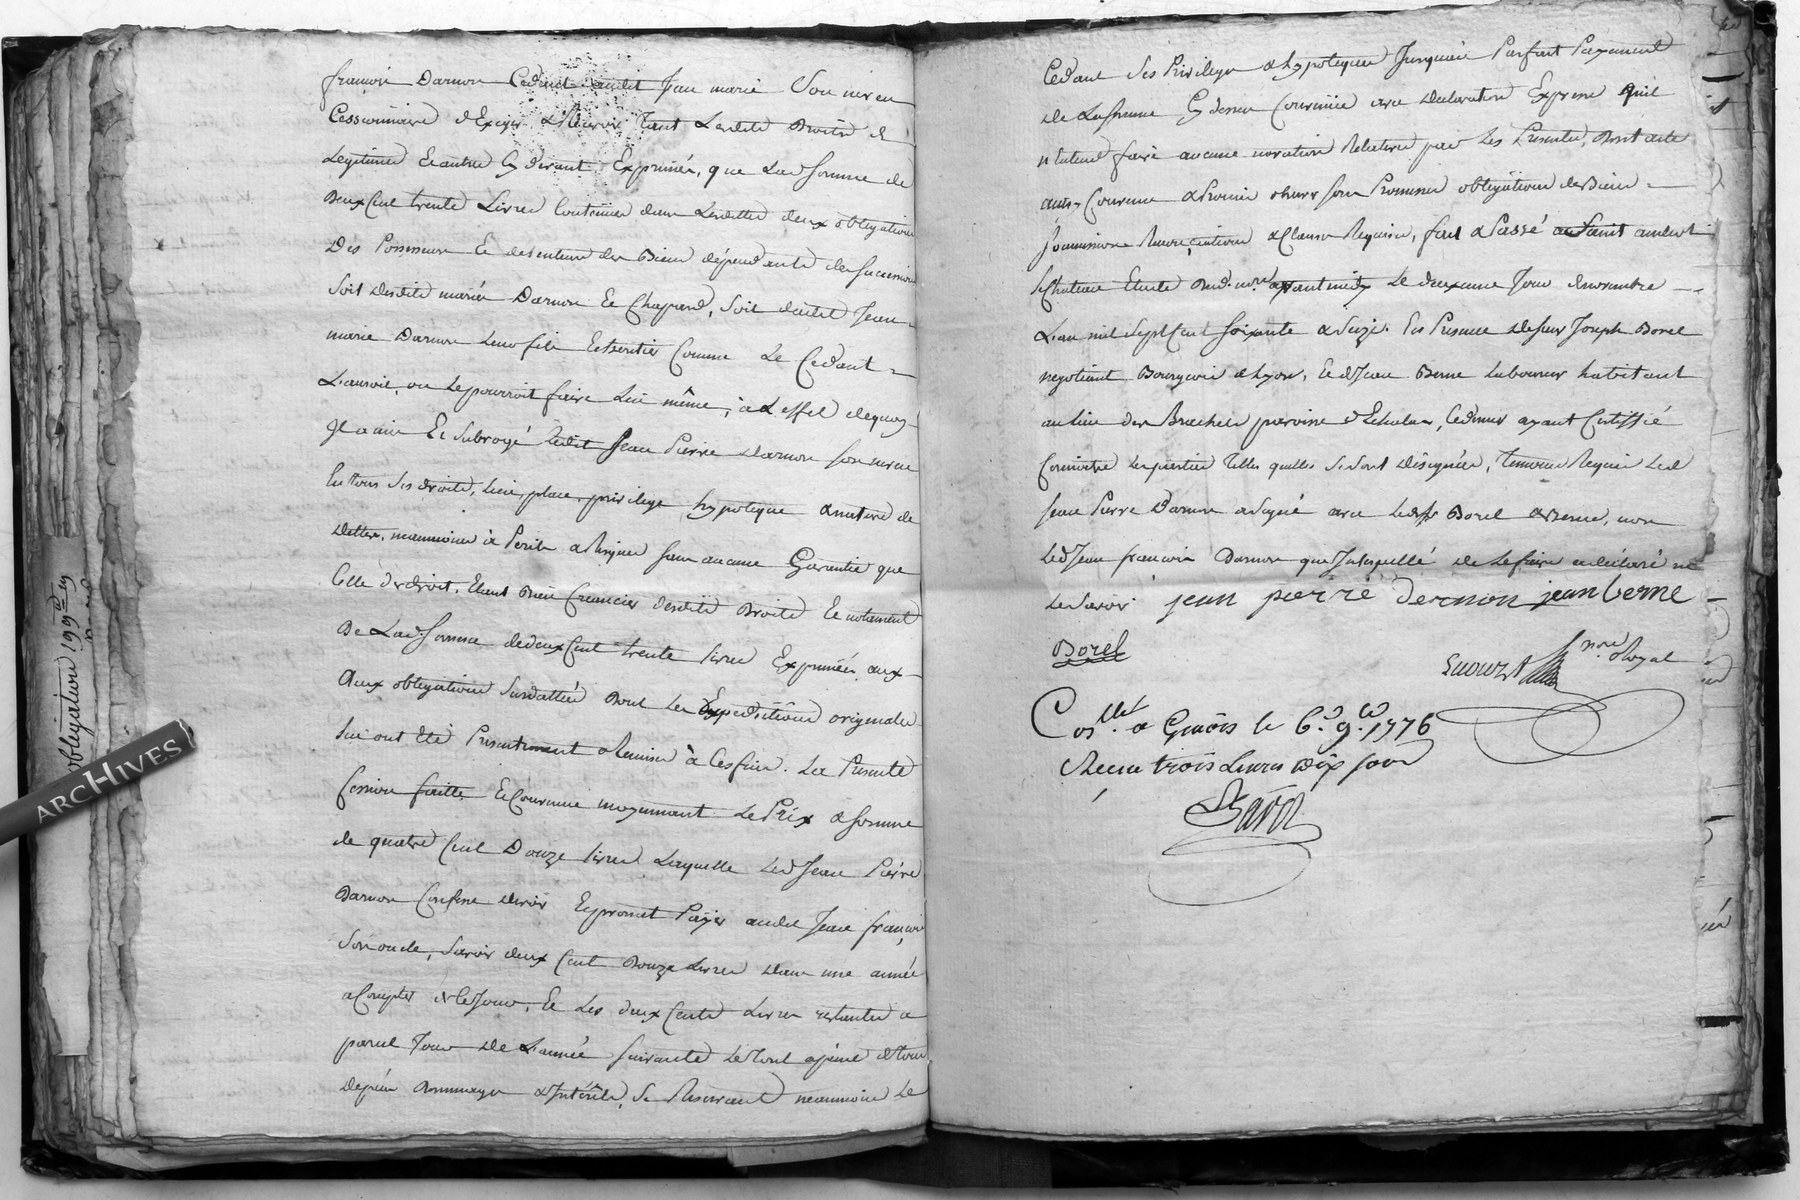 françois Darnon Cedant audit Jean marie Son neveu
Cessionnaire d'Exiger & Recevoir tant Lesdits Droits de
Legitimes Et autres Cy devant Exprimés, que Lad. somme de
Deux Cent trente Livres Contenües dans Lesdittes deux obligations
Des Possesseurs Et detenteurs des Biens dépendents de succession
Soit desdits mariés Darnon Et Chapard, Soit dudit Jean
marie Darnon Leur fils Et heritier Comme Le Cedant
L'auroit, ou Le pourroit faire Lui même, à L'effet dequoy
Il a mis Et Subrogé Ledit Jean Pierre Darnon son neveu
En tous Ses droits, Lieu, place, privilege hypoteque & nature de
Dettes, neanmoins à Perils & Risques sans aucune Garentie que
Celle de droit, Etant Bien Creancier desdits Droits Et notament
De Lad. somme de deux Cent trente livres Exprimées aux
deux obligations Susdattées Dont Les Expeditions originales
lui ont Eté Presentement Remises à Ces fins. La Presente
Cession faitte Et Convenue moyennant Le Prix & somme
de quatre Cent Douze livres Laquelle Led. Jean Pierre
Darnon Confesse devoir Et promet Payer audit Jean françois
Son oncle, Savoir deux Cent Douze Livres Dans une année
a Compter de Ce Jour, Et Les deux Cents Livres restantes a
pareil Jour de L'année suivante Le tout apeine de tous
depens Dommages & Intérêts, Se Reservant neanmoins Le
Cedant Ses Privileges & hypoteques Jusqu'au Parfait Payement
de La somme Cy dessus Convenüe avec Declaration Expresse qu'il
n'Entend faire aucune novation par Les Presentes, Dont acte
ainsy Convenu & Promis observer sous Promesses obligations de Biens
soumissions Renonciations & Clauses Requises, fait & Passé a Saint andeol
Le Chateau Etude Dud. no.re avant midy Le deuxieme Jour de novembre
L'an mil Sept Cent Soixante & Seize. En Presence de sieur Joseph Borel
negotiant Bourgeois de Lyon, Et de Jean Berne Laboureur habitant
au lieu des Brachets paroisse d'Echalas, Ce dernier ayant Certiffié
Connoitre Les parties telles quelles Se Sont Désignées, temoins Requis Led.
Jean Pierre Darnon a Signé avec Led. Sr Borel & Berne, non
Led. Jean françois Darnon que Interpellé de Le faire a déclaré ne
Le Savoir. jean pierre dernon jean berne
Borel
no.re Royal
Con.lle a Givors le 6.e 9.bre 1776
Recu trois Livres Dix sous
obligation 199
ARCHIVES